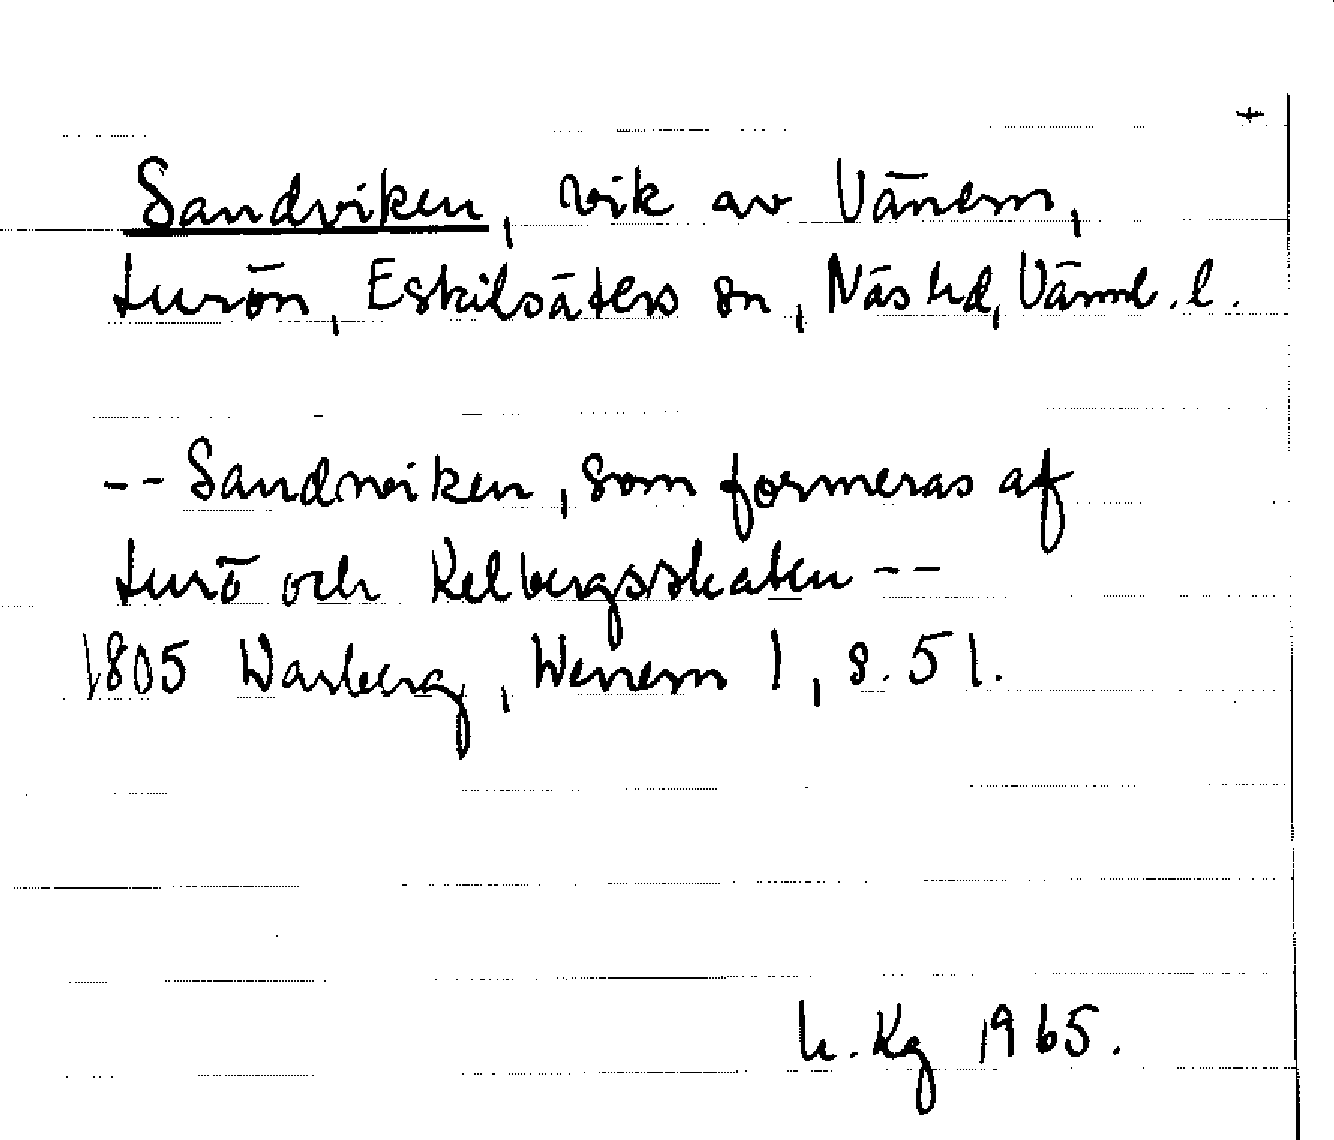 +
Sandviken, vik av Vänern,
Lurön, Eskilsäters sn, Näs hd, Värml. l.
-- Sandwiken, som formeras af
Lurö och Kelbergsskaten --
1805 Warberg, Wenern 1, s. 51.
h. Kg 1965.